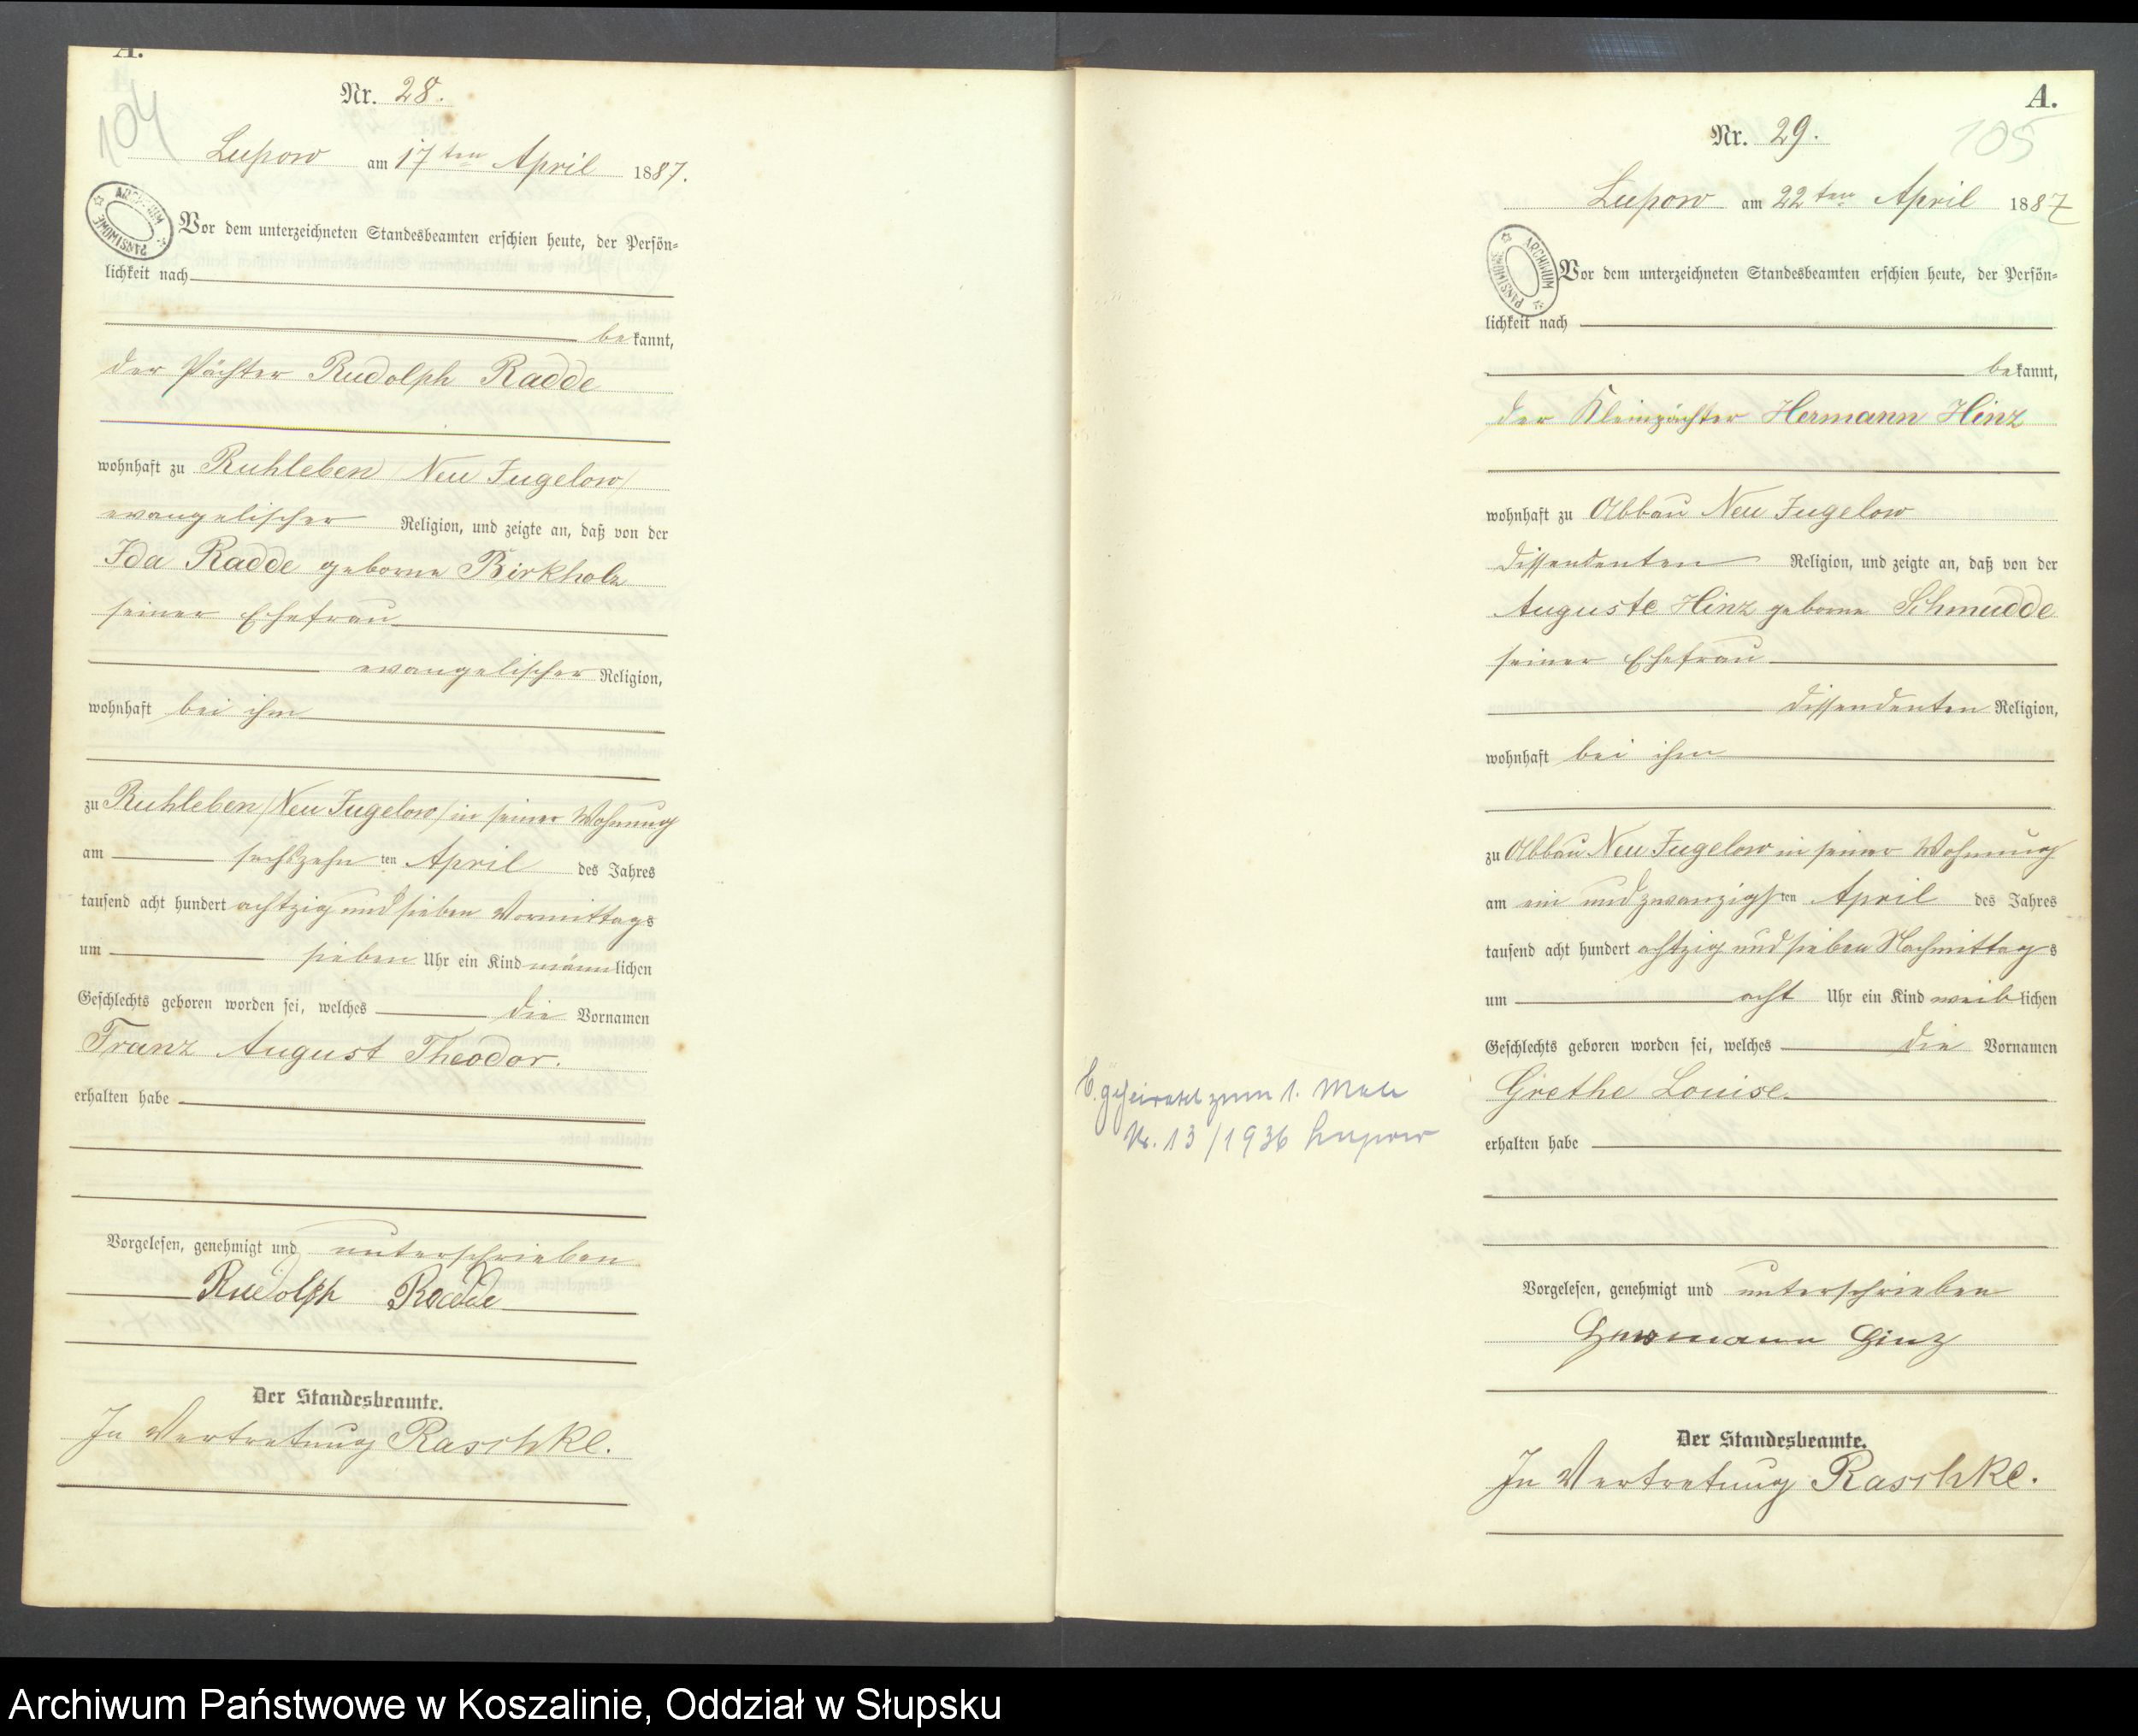 A.
104
Nr. 28.
Lupow am 17ten April 1887.
ARCHIWUM PAŃSTWOWE
Vor dem unterzeichneten Standesbeamten erschien heute, der Persön-
lichkeit nach
bekannt,
der Pächter Rudolph Radde
wohnhaft zu Ruhleben /Neu Jugelow/
evangelischer Religion, und zeigte an, daß von der
Ida Radde geborne Birkholz
seiner Ehefrau
evangelischer Religion,
wohnhaft bei ihm
zu Ruhleben /Neu Jugelow/ in seiner Wohnung
am sechszehnten April des Jahres
tausend acht hundert achtzig und sieben Vormittags
um sieben Uhr ein Kind männlichen
Geschlechts geboren worden sei, welches die Vornamen
Franz August Theodor.
erhalten habe
Vorgelesen, genehmigt und unterschrieben
Rudolph Radde
Der Standesbeamte.
In Vertretung Raschke.
A.
105
Nr. 29.
Lupow am 22ten April 1887
ARCHIWUM PAŃSTWOWE
Vor dem unterzeichneten Standesbeamten erschien heute, der Persön-
lichkeit nach
bekannt,
der Kleinpächter Hermann Hinz
wohnhaft zu Abbau Neu Jugelow
dissendenten Religion, und zeigte an, daß von der
Auguste Hinz geborne Schmudde
seiner Ehefrau
dissendenten Religion,
wohnhaft bei ihm
zu Abbau Neu Jugelow in seiner Wohnung
am ein und zwanzigsten April des Jahres
tausend acht hundert achtzig und sieben Nachmittags
um acht Uhr ein Kind weiblichen
Geschlechts geboren worden sei, welches die Vornamen
Grethe Louise.
erhalten habe
geheiratet zum 1. Male
Nr. 13/1936 Lupow
Vorgelesen, genehmigt und unterschrieben
Hermann Hinz
Der Standesbeamte.
In Vertretung Raschke.
Archiwum Państwowe w Koszalinie, Oddział w Słupsku